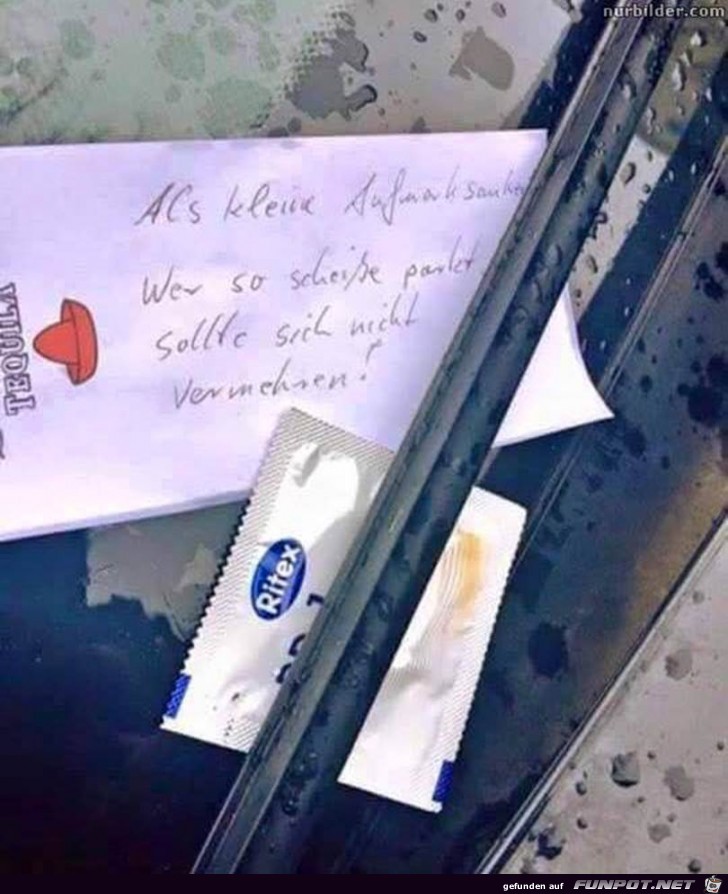 nurbilder.com
Als kleine Aufmerksamkeit
Wer so scheiße parkt,
sollte sich nicht
vermehren!
TEQUILA
Ritex
gefunden auf FUNPOT.NET